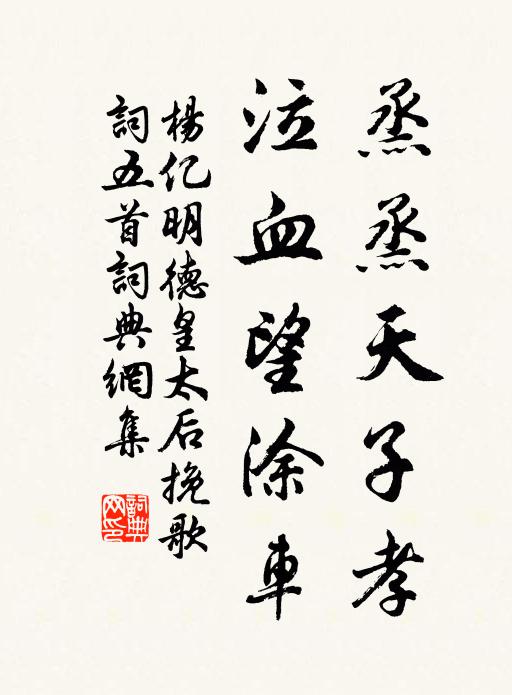 烝烝天子孝
泣血望涂車
楊亿明德皇太后挽歌
詞五首詞典網集
詞典
网印